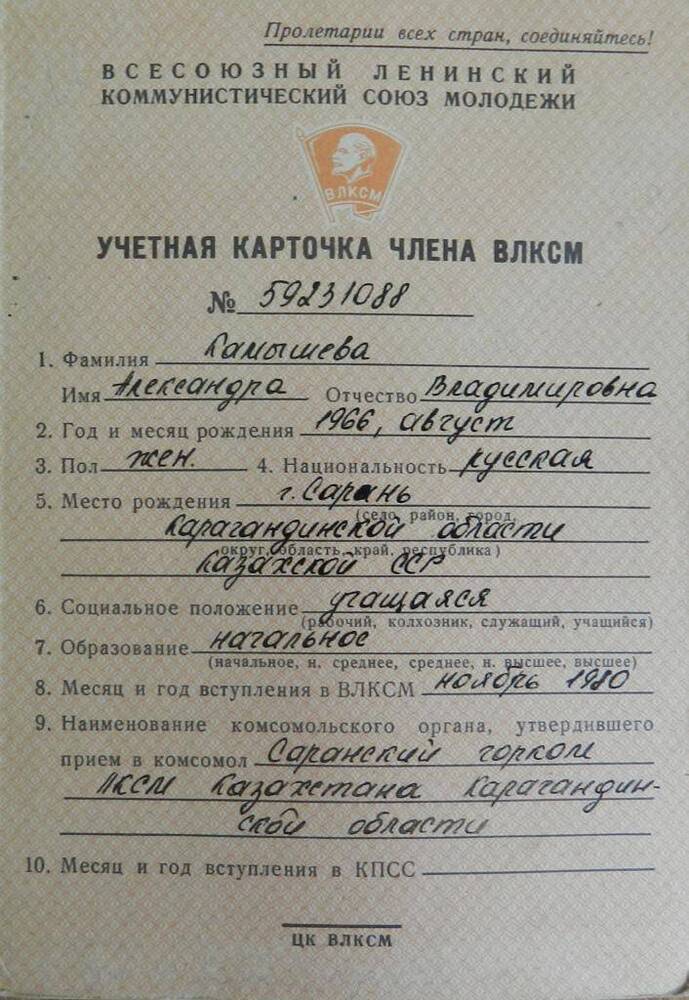 Пролетарии всех стран, соединяйтесь!
ВСЕСОЮЗНЫЙ ЛЕНИНСКИЙ
КОММУНИСТИЧЕСКИЙ СОЮЗ МОЛОДЕЖИ
ВЛКСМ
УЧЕТНАЯ КАРТОЧКА ЧЛЕНА ВЛКСМ
№ 59231088
1. Фамилия Камышева
Имя Александра Отчество Владимировна
2. Год и месяц рождения 1966, август
3. Пол жен. 4. Национальность русская
5. Место рождения г. Сарань
(село, район, город,
Карагандинской области
округ, область, край, республика)
Казахской ССР
6. Социальное положение учащаяся
(рабочий, колхозник, служащий, учащийся)
7. Образование начальное
(начальное, н. среднее, среднее, н. высшее, высшее)
8. Месяц и год вступления в ВЛКСМ ноябрь 1980
9. Наименование комсомольского органа, утвердившего
прием в комсомол Саранский горком
ЛКСМ Казахстана Карагандин-
ской области
10. Месяц и год вступления в КПСС
ЦК ВЛКСМ